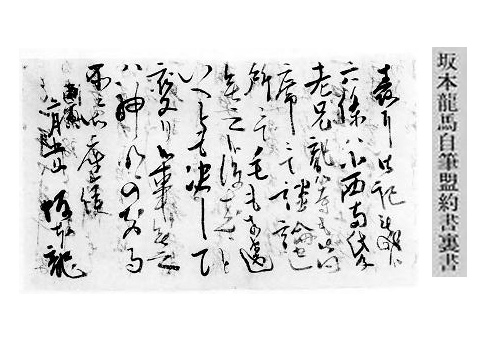 坂本龍馬自筆盟約書裏書
表に御記被成候
六條ハ小西両氏及
老兄龍等も御同
席ニて談論セし
所ニて毛も相違
無之候後来と
いへとも決して
変り候事無之
ハ神明の知る
所ニ御座候
丙寅
二月五日 坂本龍